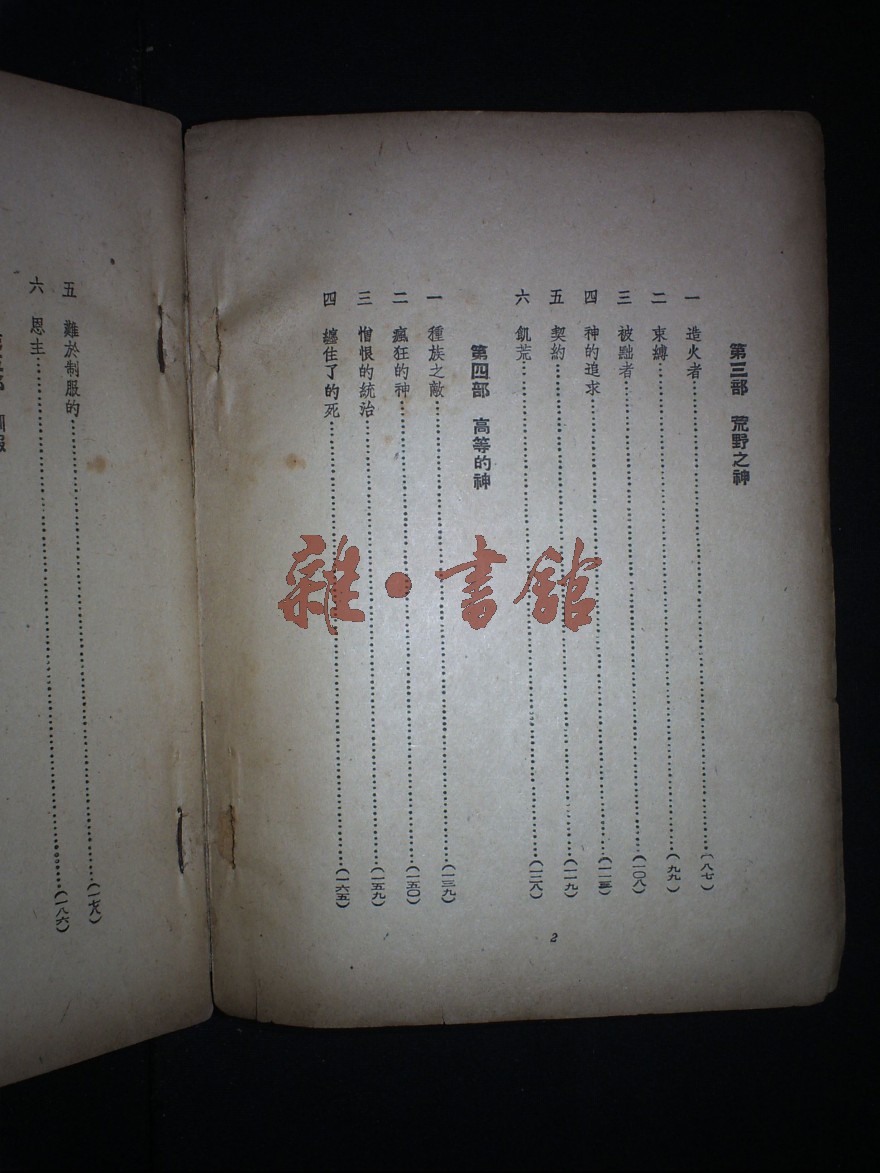 第三部 荒野之神
一 造火者……(八七)
二 束縛……(九九)
三 被黜者……(一〇八)
四 神的追求……(一一三)
五 契約……(一一九)
六 飢荒……(一二八)
第四部 高等的神
一 種族之敵……(一三九)
二 瘋狂的神……(一五〇)
三 憎恨的統治……(一五九)
四 纏住了的死……(一六五)
2
五 難於制服的……(一七八)
六 恩主……(一八六)
雜·書館